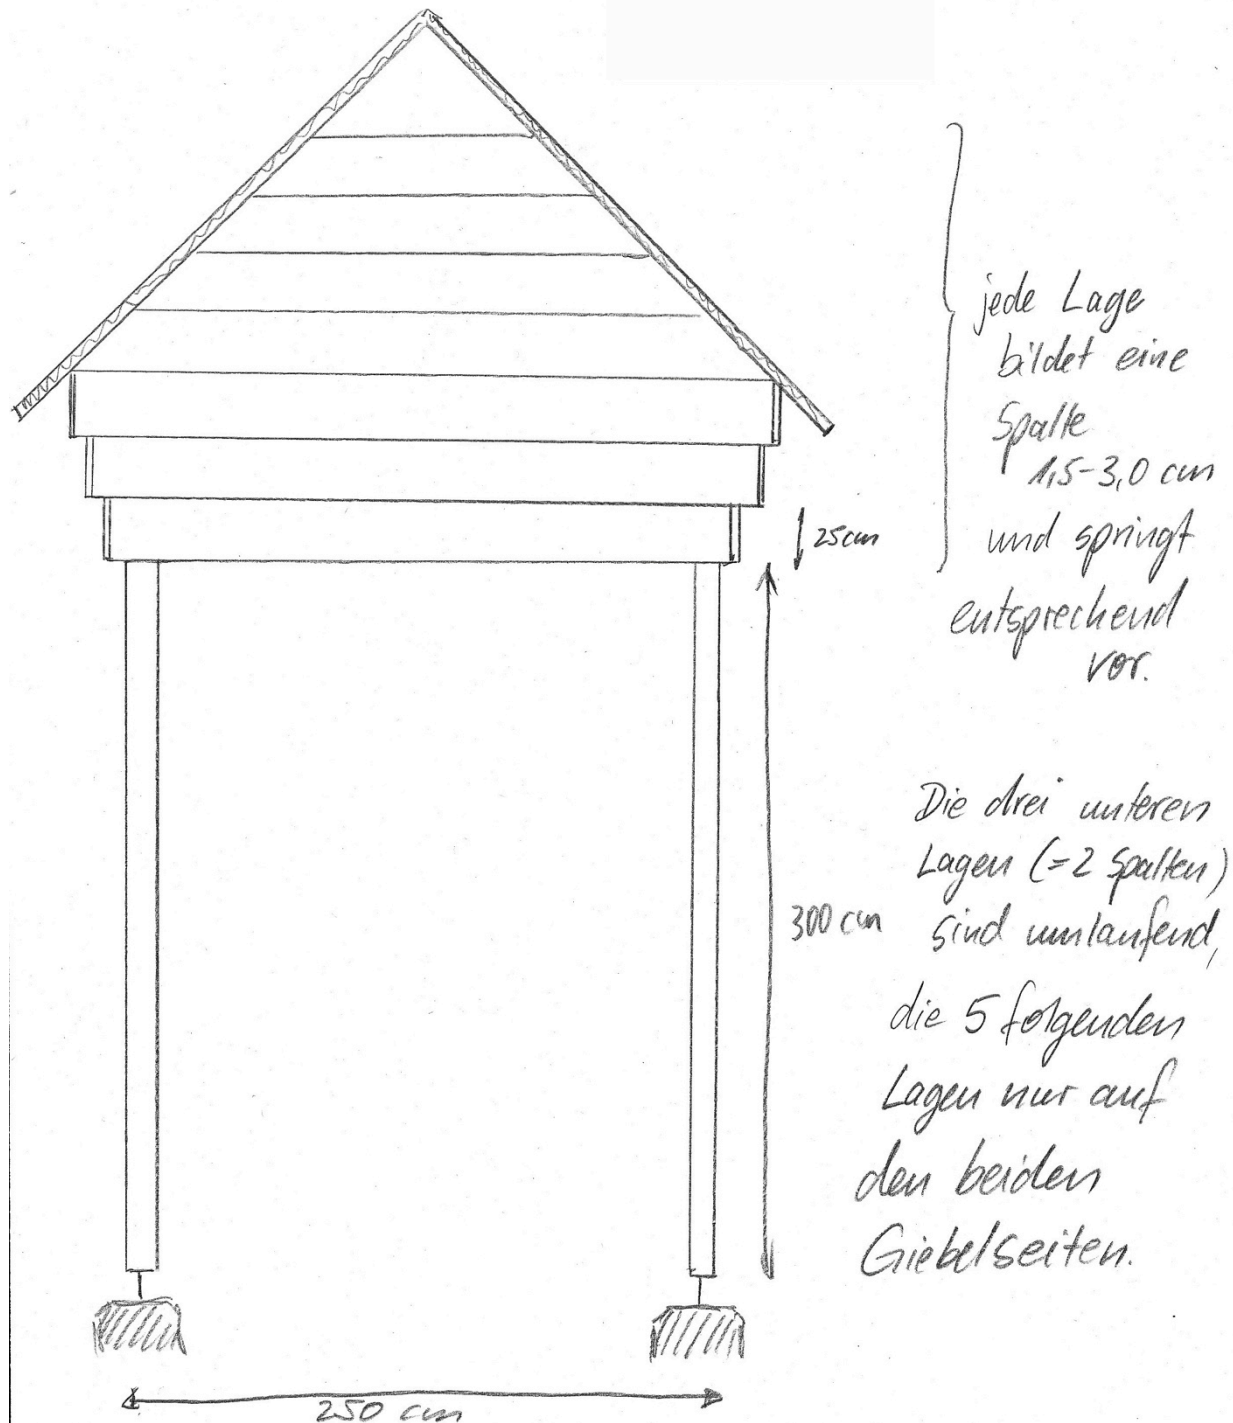 jede Lage
bildet eine
Spalte
1,5-3,0 cm
und springt
entsprechend
vor.
25cm
Die drei unteren
Lagen (=2 Spalten)
sind umlaufend,
die 5 folgenden
Lagen nur auf
den beiden
Giebelseiten.
300 cm
250 cm